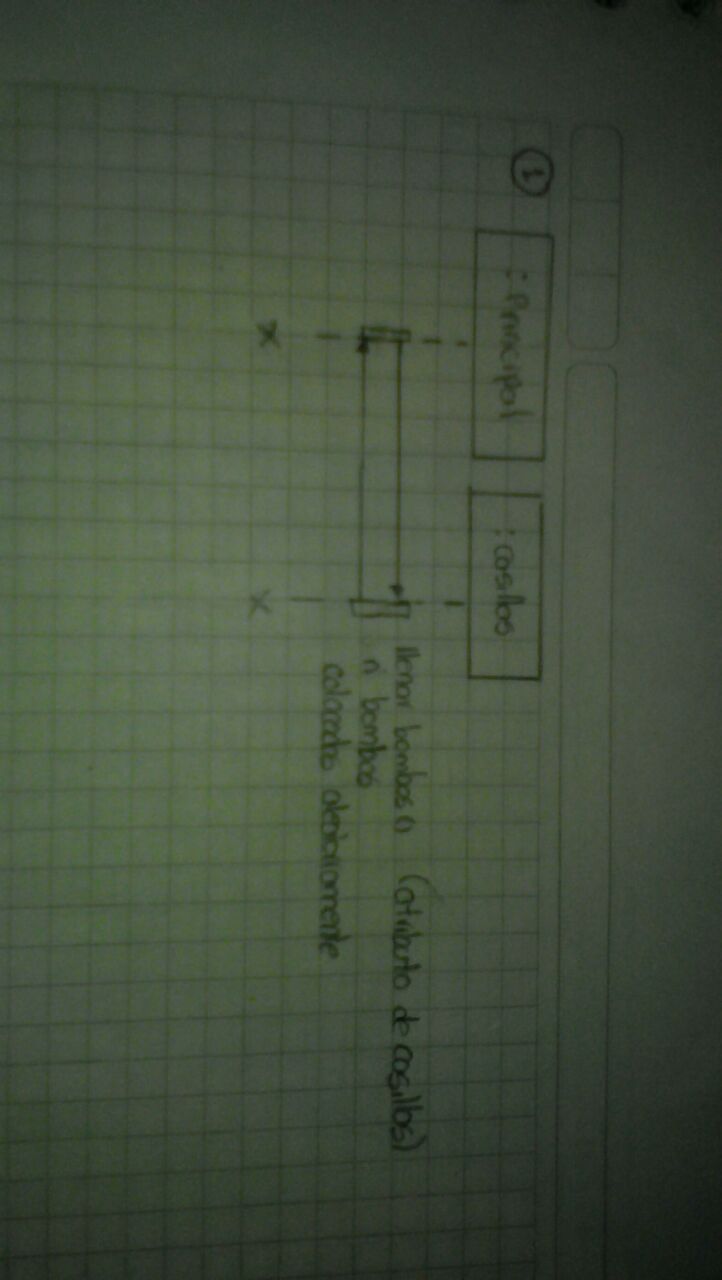 1
:Principal
:casillas
llenar bombas () (atributo de casillas)
n bombas
colocadas aleatoriamente
X
X